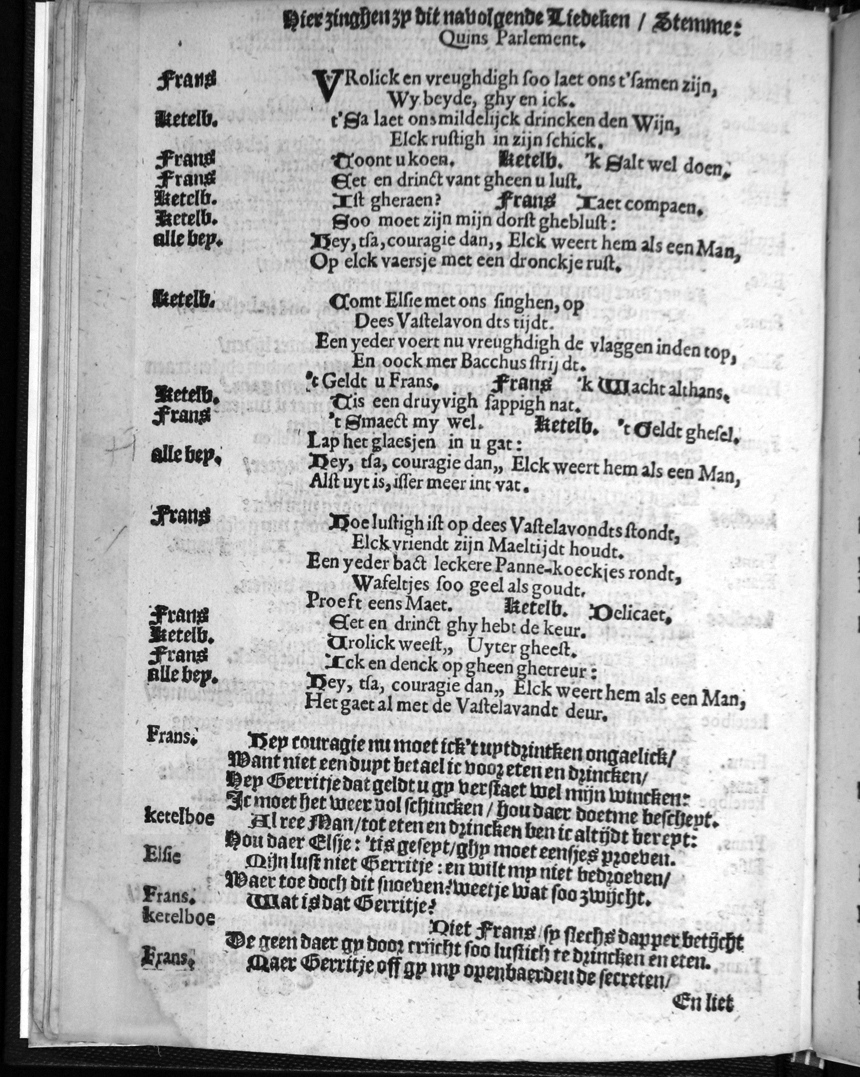 Hier zinghen zy dit navolgende Liedeken / Stemme:
Quins Parlement.
Frans VRolick en vreughdigh soo laet ons t'samen zijn,
Wy beyde, ghy en ick.
Ketelb. t'Sa laet ons mildelijck drincken den Wijn,
Elck rustigh in zijn schick.
Frans Toont u koen. Ketelb. 'k Salt wel doen.
Frans Eet en drinct vant gheen u lust.
Ketelb. Ist gheraen? Frans Iaet compaen.
Ketelb. Soo moet zijn mijn dorst gheblust:
alle bey. Hey, tsa, couragie dan,, Elck weert hem als een Man,
Op elck vaersje met een dronckje rust.
Ketelb. Comt Elsie met ons singhen, op
Dees Vastelavondts tijdt.
Een yeder voert nu vreughdigh de vlaggen inden top,
En oock mer Bacchus strijdt.
't Geldt u Frans. Frans 'k Wacht althans.
Ketelb. Tis een druyvigh sappigh nat.
Frans 't Smaect my wel. Ketelb. 't Geldt ghesel.
Lap het glaesjen in u gat:
alle bey. Hey, tsa, couragie dan,, Elck weert hem als een Man,
Alst uyt is, isser meer int vat.
Frans Hoe lustigh ist op dees Vastelavondts stondt,
Elck vriendt zijn Maeltijdt houdt.
Een yeder bact leckere Panne-koeckjes rondt,
Wafeltjes soo geel als goudt.
Proeft eens Maet. Ketelb. Delicaet.
Frans Eet en drinct ghy hebt de keur.
Ketelb. Vrolick weest,, Uyter gheest.
Frans Ick en denck op gheen ghetreur:
alle bey. Hey, tsa, couragie dan,, Elck weert hem als een Man,
Het gaet al met de Vastelavandt deur.
Frans. Hey couragie nu moet ick't uytdrintken ongaelick/
Want niet een duyt betael ic voor eten en drincken/
Hey Gerritje dat geldt u gy verstaet wel mijn wincken:
Ic moet het weer vol schincken / hou daer doetme bescheyt.
ketelboe Al ree Man / tot eten en drincken ben ic altijdt bereyt:
Hou daer Elsje: 'tis geseyt / ghy moet eensjes proeven.
Elsie Mijn lust niet Gerritje: en wilt my niet bedroeven/
Waer toe doch dit snoeven? weetje wat soo zwijcht.
Frans. Wat is dat Gerritje?
ketelboe Niet Frans / sy slechs dapper betijcht
De geen daer gy door crijcht soo lustich te drincken en eten.
Frans. Maer Gerritje off gy my openbaerden de secreten/
En liet